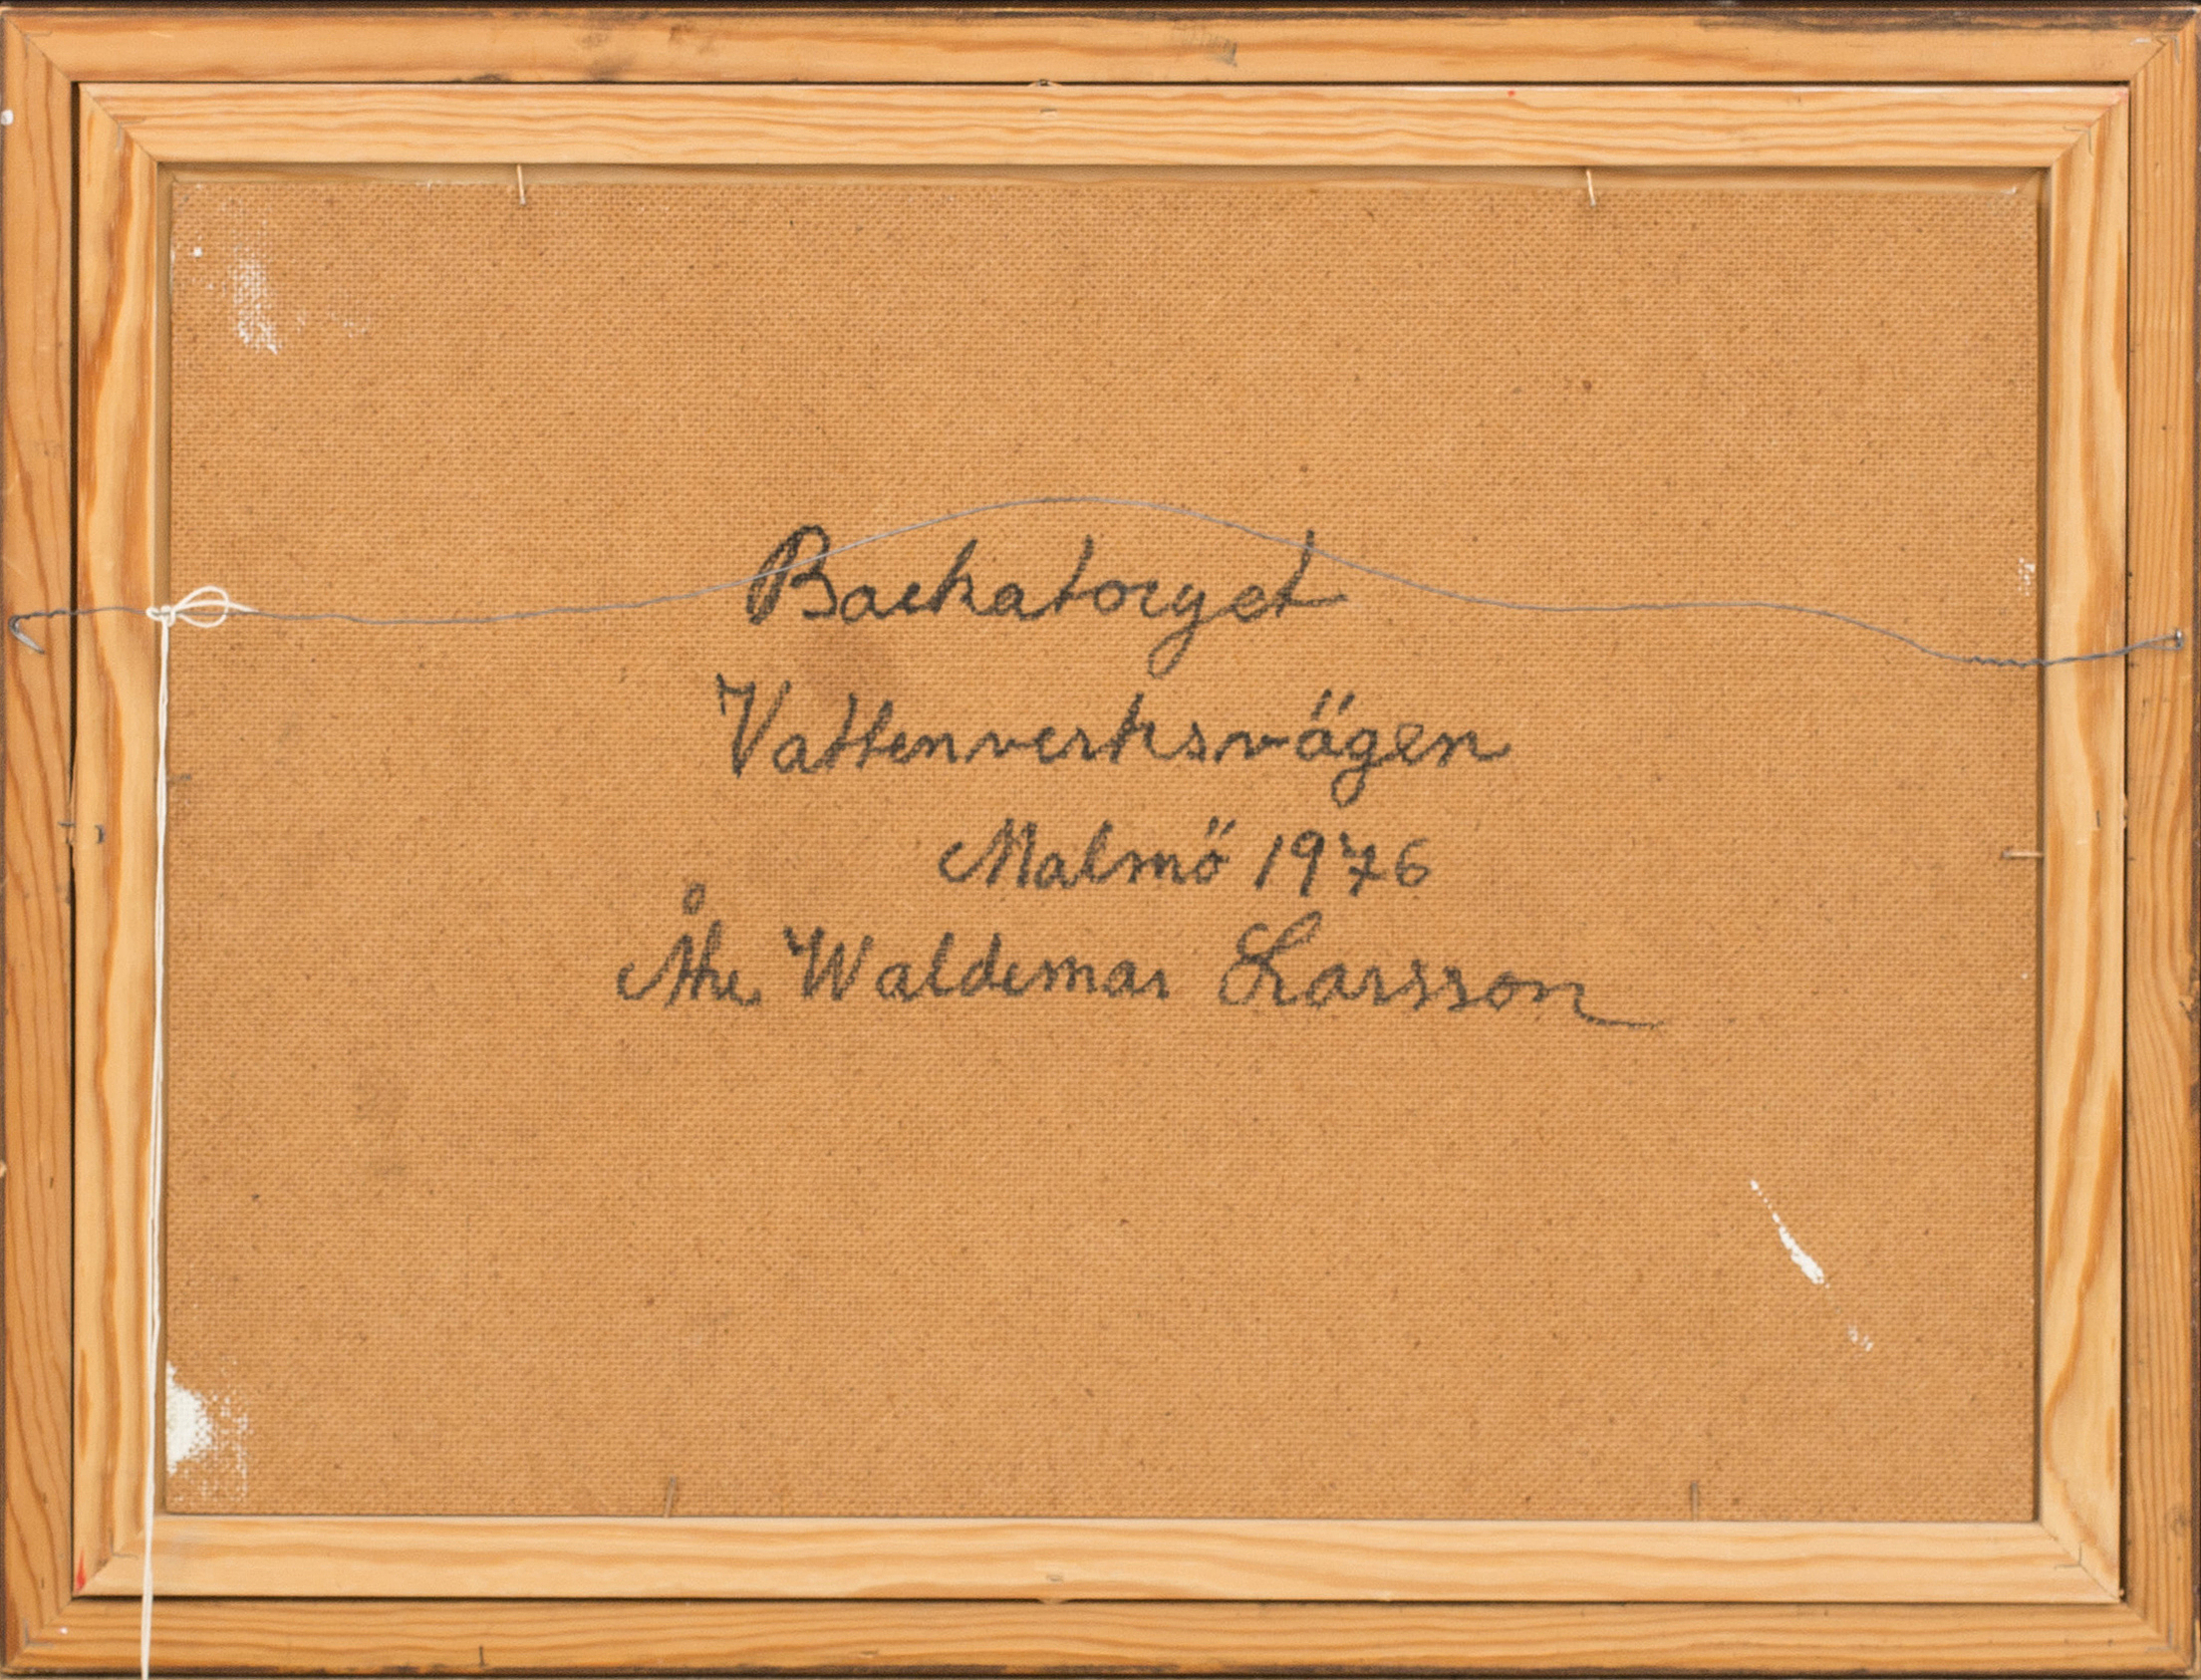 Backatorget
Vattenverksvägen
Malmö 1976
Åke Waldemar Larsson